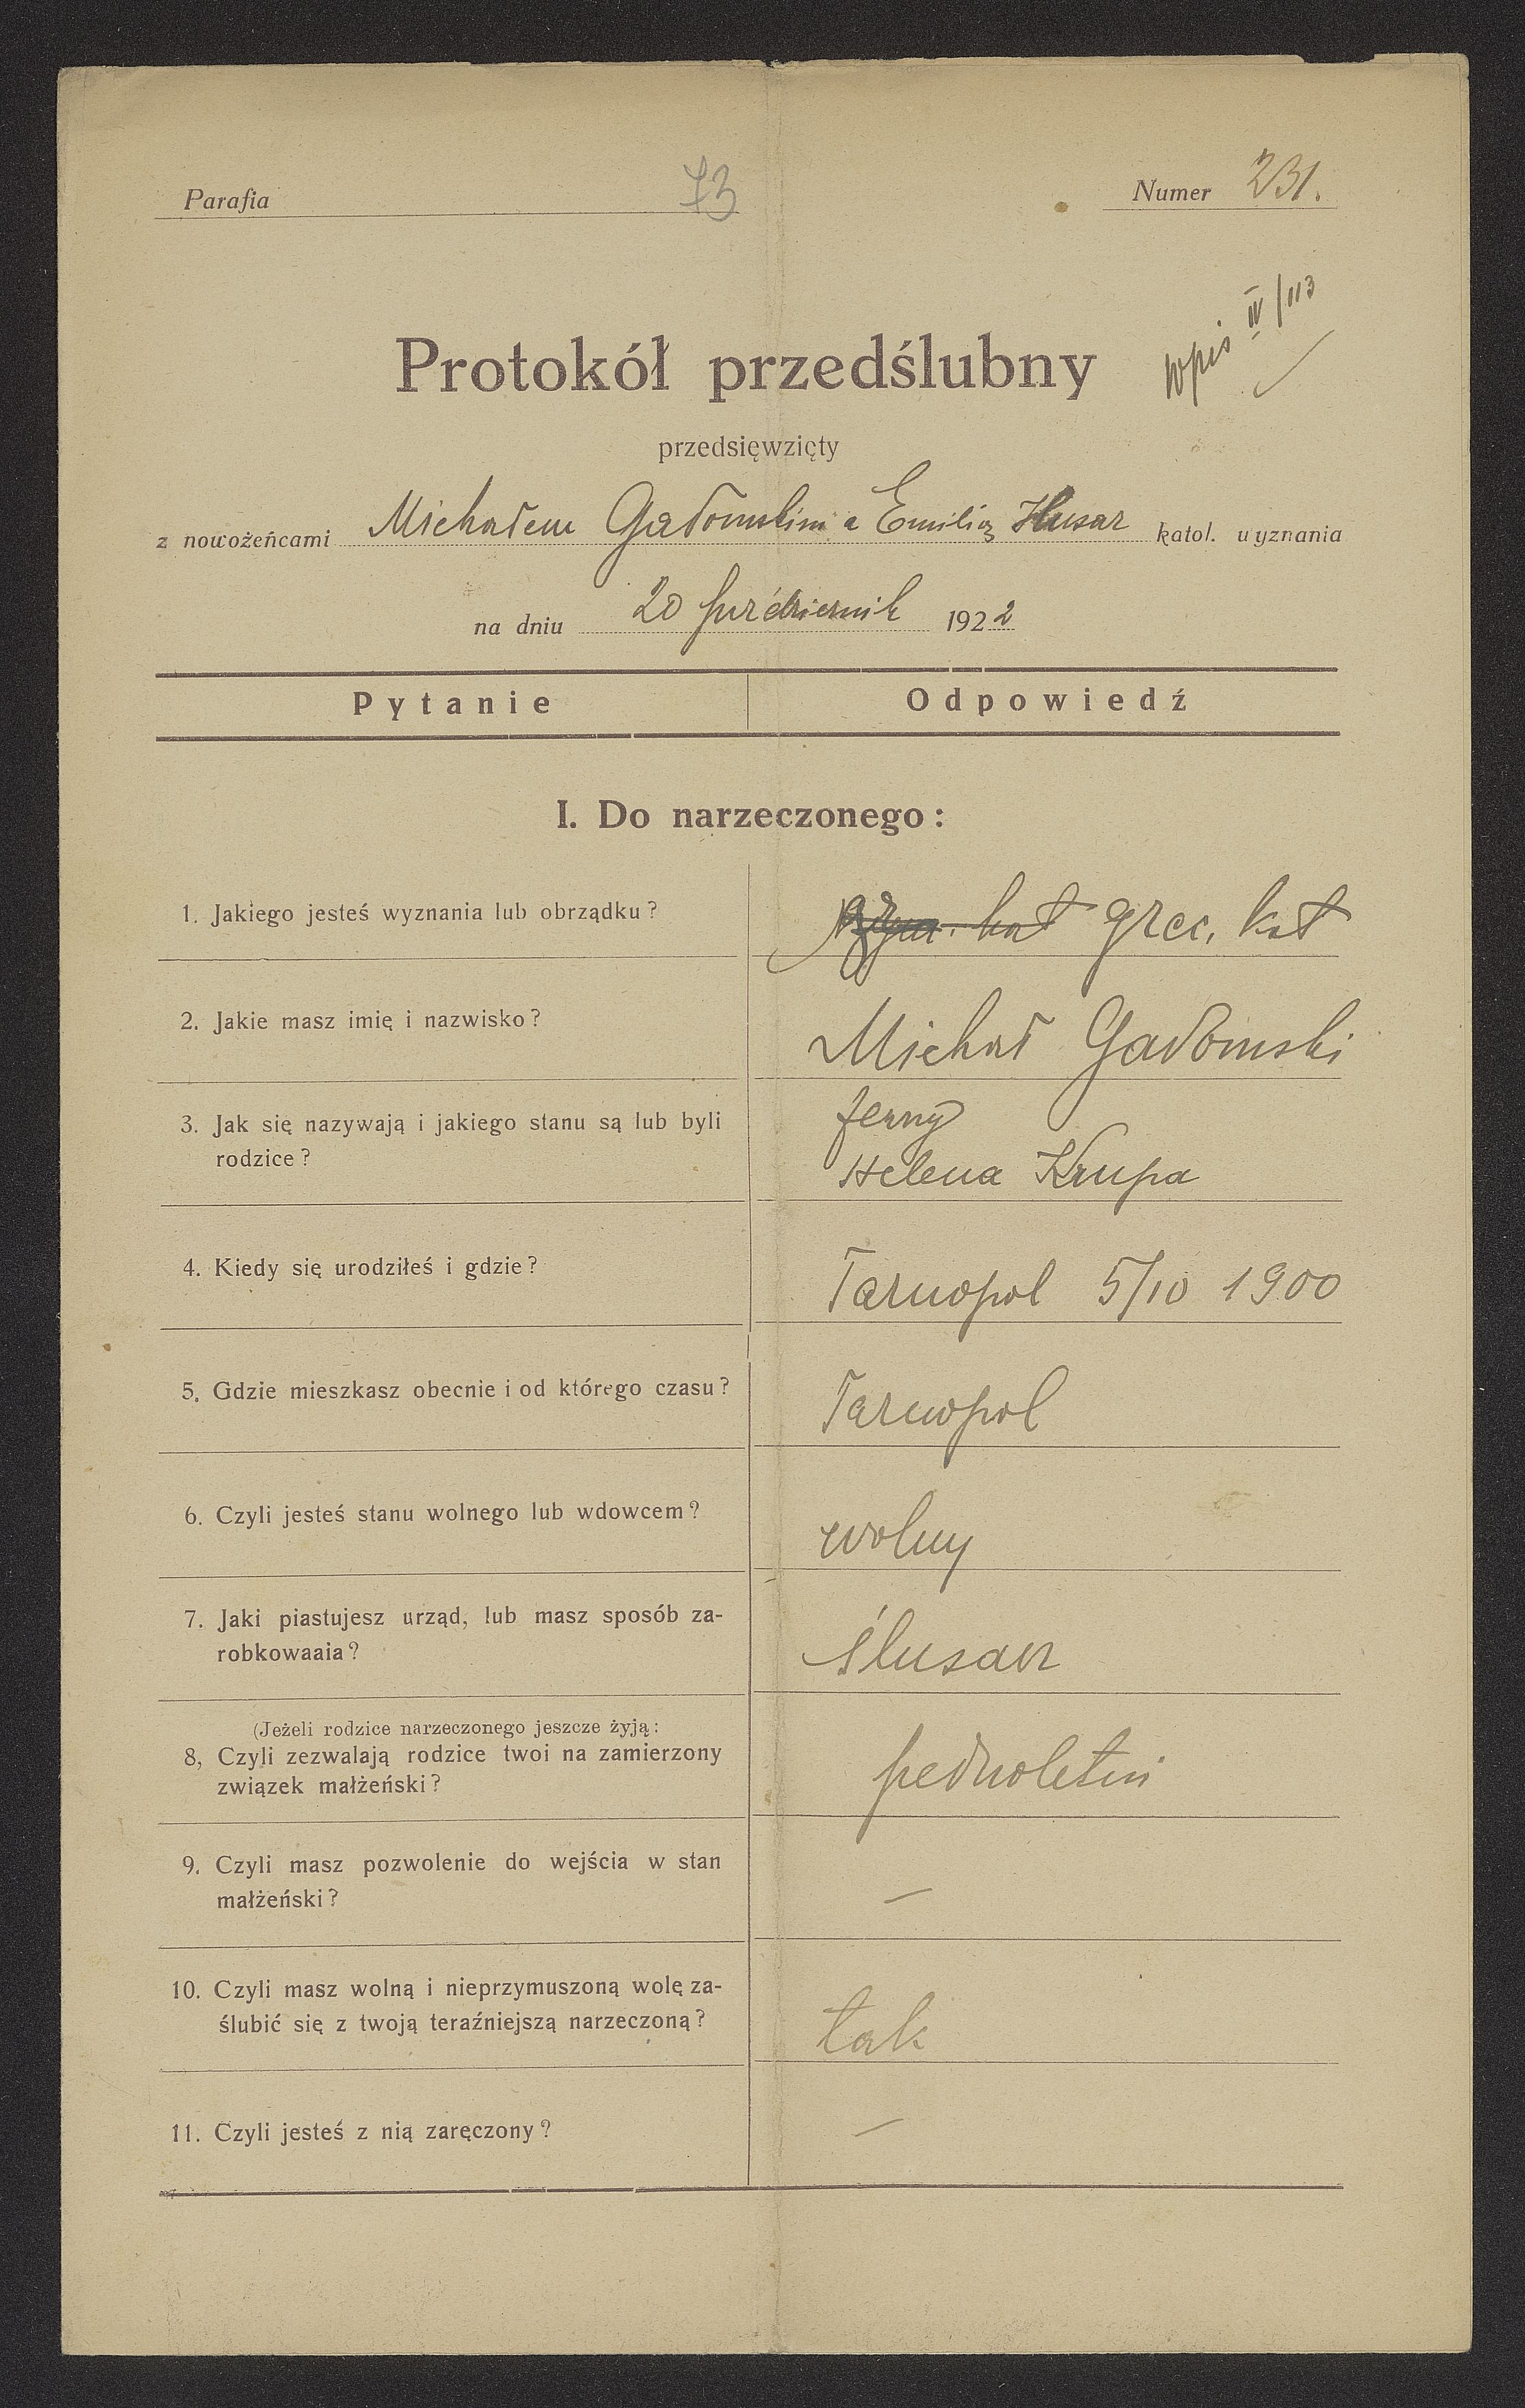 Parafia 73 Numer 231.
wpis IV/113
Protokół przedślubny
przedsięwzięty
z nowożeńcami Michałem Gadomskim a Emilią Husar katol. wyznania
na dniu 20 październik 1922
Pytanie Odpowiedź
I. Do narzeczonego:
1. Jakiego jesteś wyznania lub obrządku? rzym. kat grec. kat
2. Jakie masz imię i nazwisko? Michał Gadomski
3. Jak się nazywają i jakiego stanu są lub byli
rodzice?
Helena Krupa
4. Kiedy się urodziłeś i gdzie? Tarnopol 5/10 1900
5. Gdzie mieszkasz obecnie i od którego czasu? Tarnopol
6. Czyli jesteś stanu wolnego lub wdowcem? wolny
7. Jaki piastujesz urząd, lub masz sposób za-
robkowaaia? ślusarz
(Jeżeli rodzice narzeczonego jeszcze żyją:
8, Czyli zezwalają rodzice twoi na zamierzony
związek małżeński?
9. Czyli masz pozwolenie do wejścia w stan
małżeński? —
10. Czyli masz wolną i nieprzymuszoną wolę za-
ślubić się z twoją teraźniejszą narzeczoną? tak
11. Czyli jesteś z nią zaręczony? —